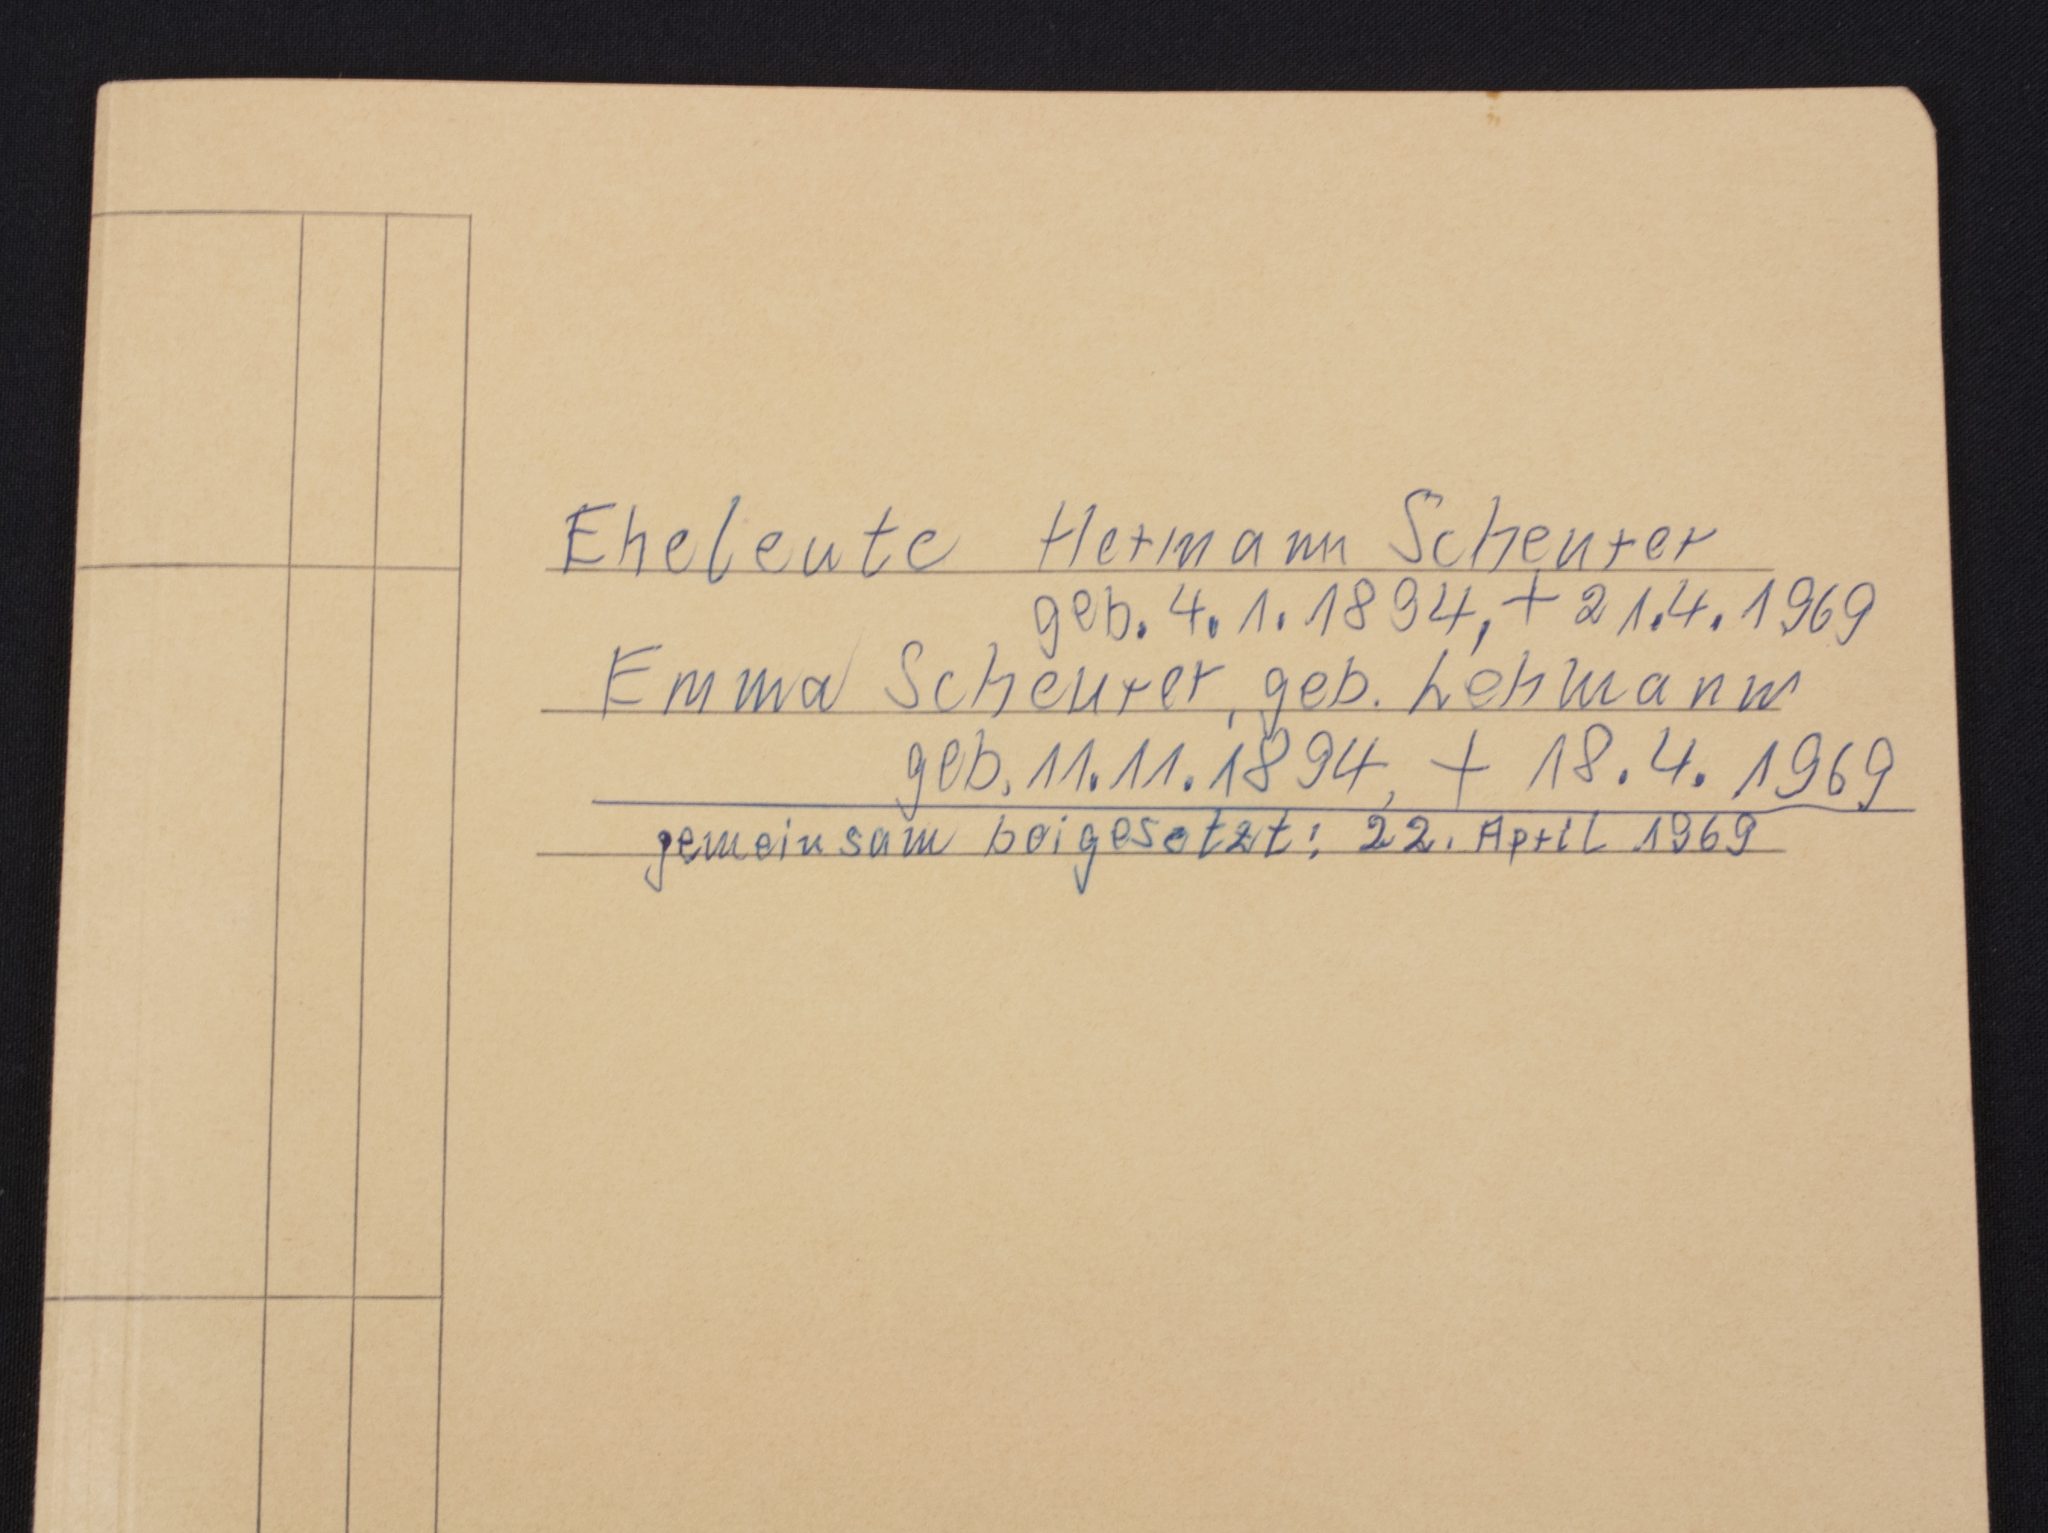 Eheleute Hermann Scheurer
geb. 4.1.1894, + 21.4.1969
Emma Scheurer, geb. Lehmann
geb. 11.11.1894, + 18.4.1969
gemeinsam beigesetzt: 22. April 1969